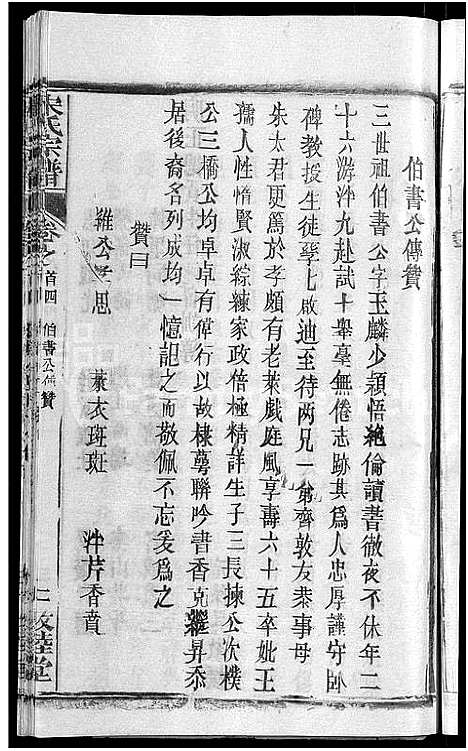 伯書公傳贊
三世祖伯書公字玉麟少穎悟絶倫讀書徹夜不休年二
十六游泮九赴試十舉毫無倦志跡其爲人忠厚謹守卧
碑教授生徒孳七啟迪至待兩兄一弟齊敦友恭事母
朱太君更篤於孝頗有老萊戲庭風享壽六十五卒妣王
孺人性惜賢淑綜練家政倍極精詳生子三長揀公次樸
公三橋公均卓卓有偉行以故棣蕚聯吟書香克繼昇忝
居後裔名列成均一憶詛之而敬佩不忘爰爲之
贊曰
維公孝思 萊衣斑斑 泮芹香賁
宋氏宗譜 卷之首四 伯書公傳贊 二 敦睦堂